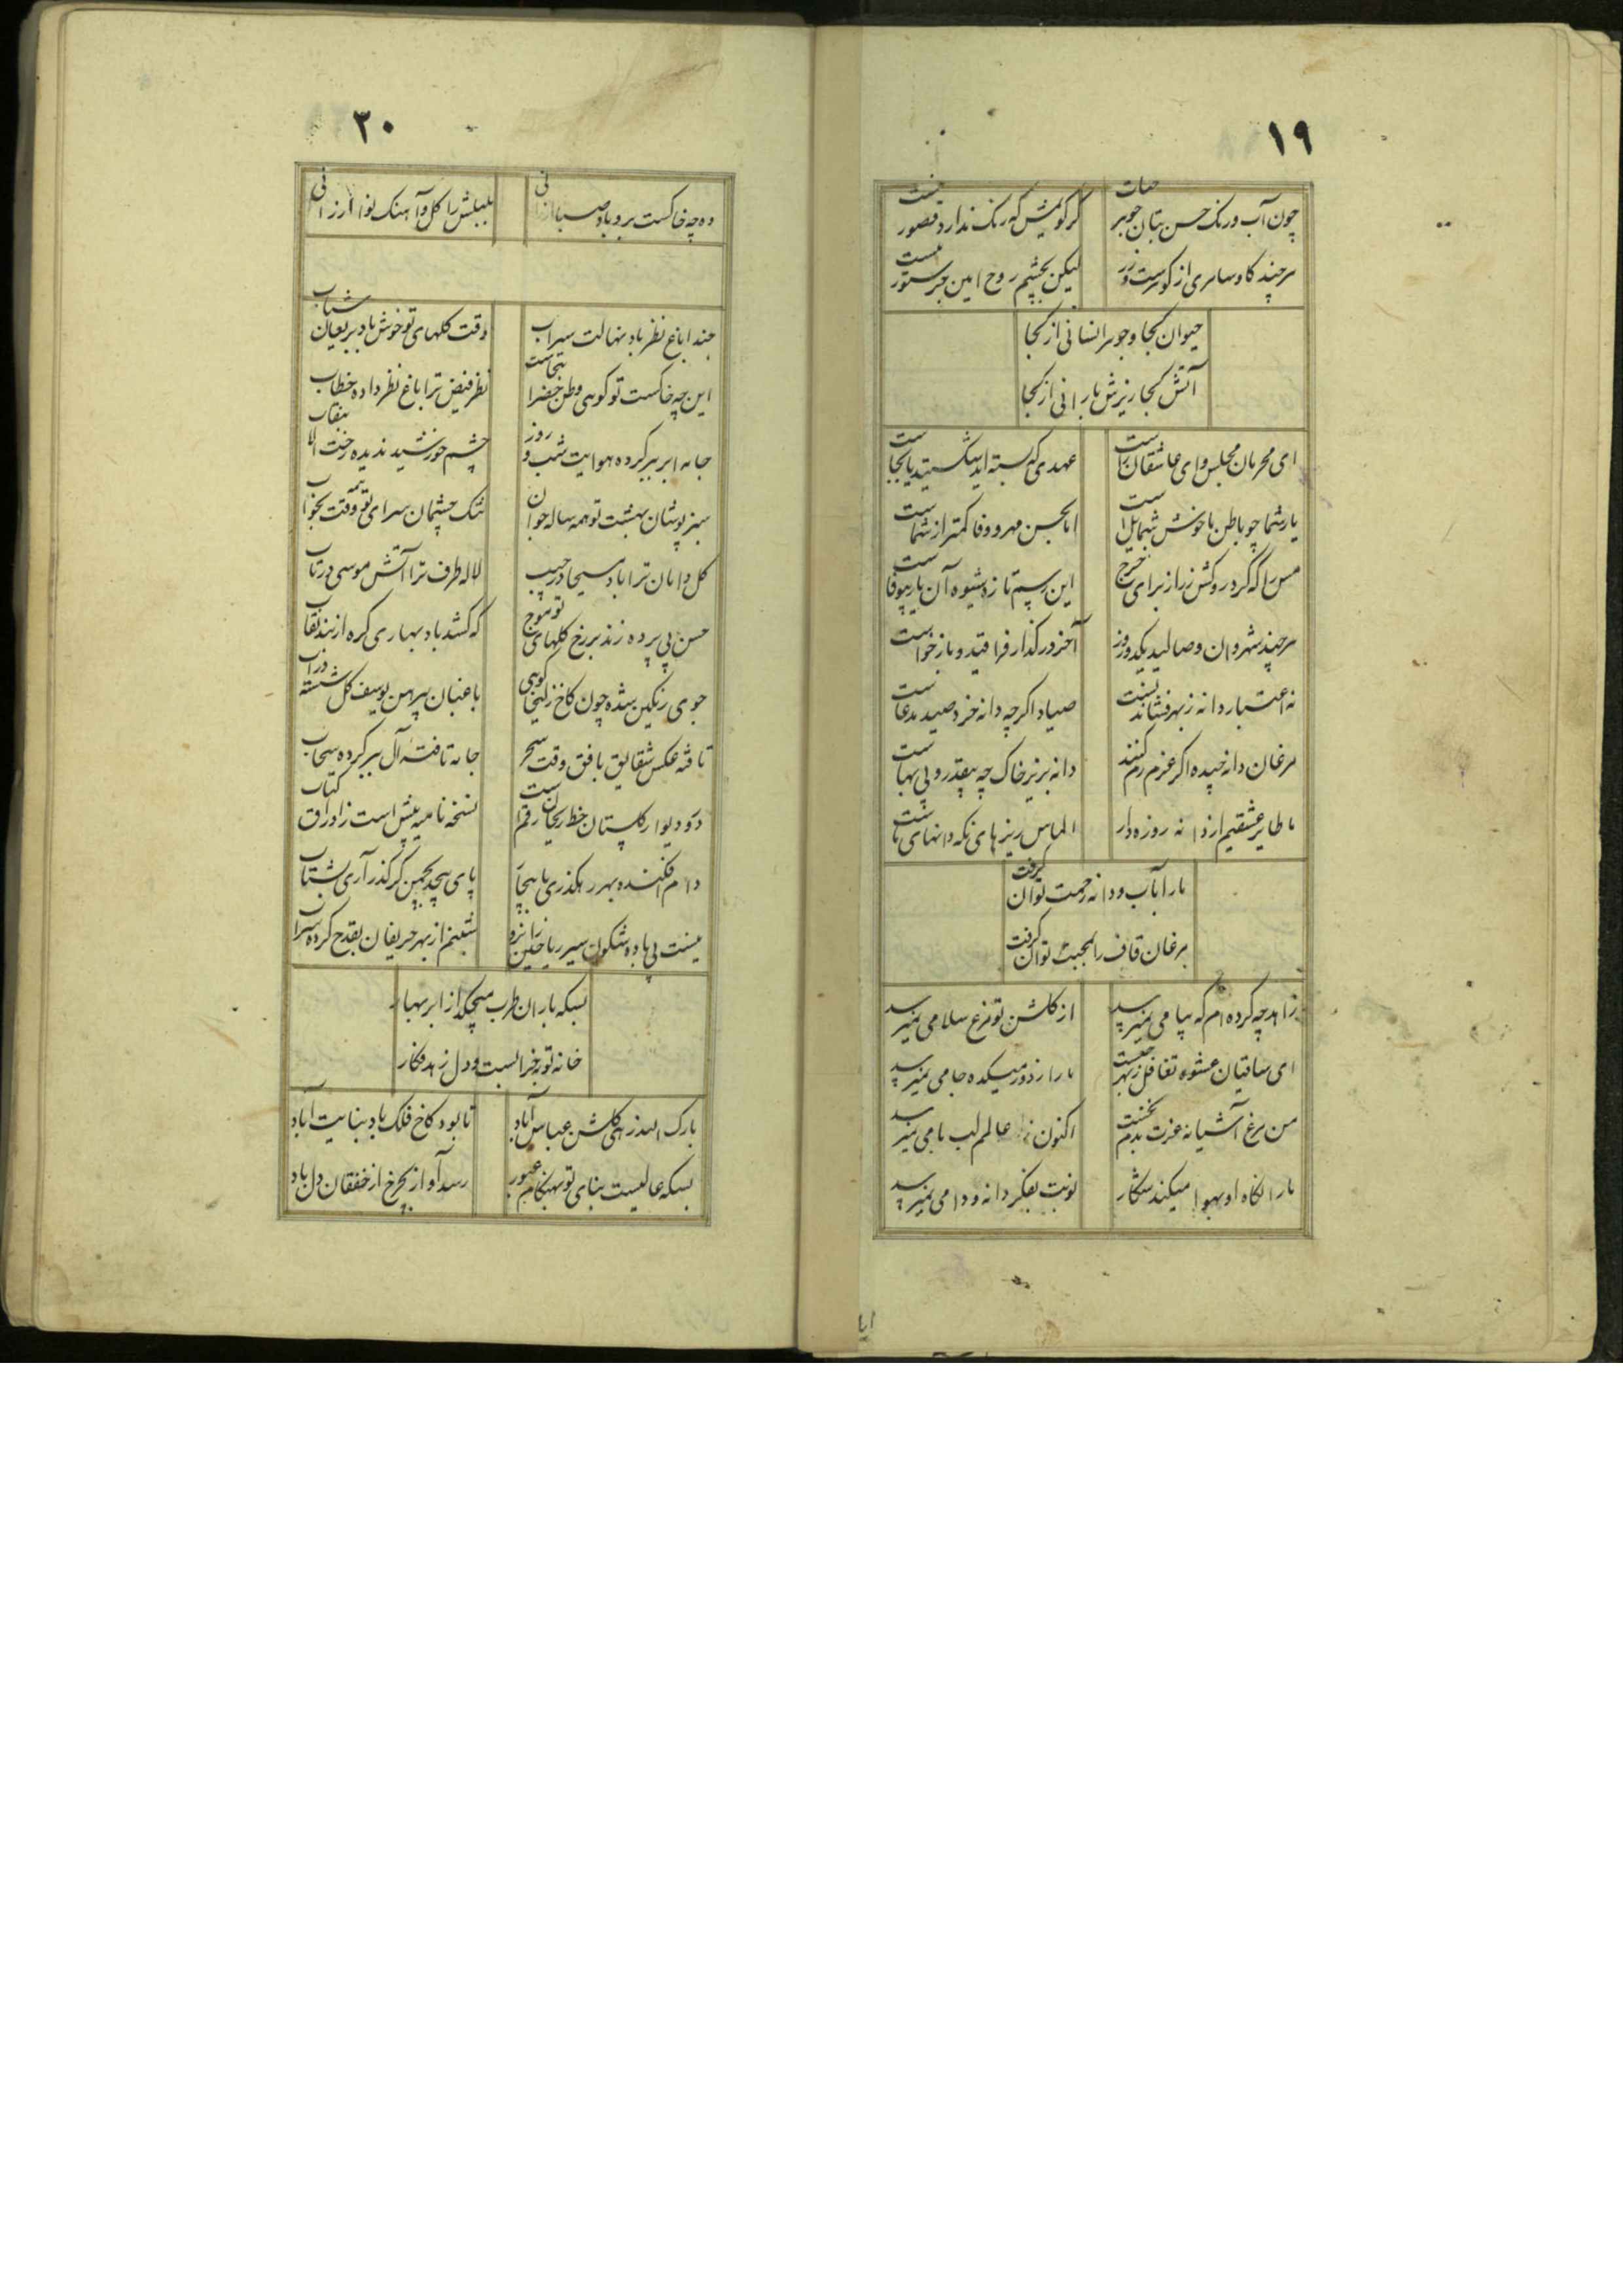 ١٩
چون آب و رنک حسن بتان جوهر حیات
کر کویمش که رنک ندارد قصور نیست
هرچند کاو سامری از کوهرست و زر
لیکن بچشم روح امین جز ستور نیست
حیوان کجا و جوهر انسانی از کجا
آتش کجا ریزش بارانی از کجا
ای محرمان مجلس وای عاشقان راست
عهدی که بسته اید شکستید یا بجاست
یار شما چو باطن ما خوش شمایل است
اما بحسن مهر و وفا کمتر از شماست
مس را که کرد روکش زر از برای خرج
این رسم تازه شیوه آن یار بیوفاست
هرچند شهروان وصالید یکدو روز
آخر در کذار فراقید و بازخواست
نه اعتبار دانه ز بهر فشاندنست
صیاد اکرچه دانه خرد صید مدعاست
مرغان دانه چیده اکر عزم رم کنند
دانه بزیر خاک چه بیقدر و بی بهاست
ما طایر عشقیم از دانه روزه دار
الماس ریزهای نکه دانهای ماست
ما را بآب و دانه زحمت توان کرفت
مرغان قاف را بمحبت توان کرفت
زاهد چه کرده ام که پیامی نمیرسد
از کلشن تو مرغ سلامی نمیرسد
ای ساقیان عشوه تغافل ز بهر چیست
ما را ز دور میکده جامی نمیرسد
من مرغ آشیانه عزت بدم نخست
اکنون ز عالم لب بامی نمیرسد
ما را نکاه او بهوا میکند شکار
نوبت بفکر دانه و دامی نمیرسد
٢٠
وه چه خاکست برو باد صبا ارزانی
بلبلش را کل و آهنک نوا ارزانی
حبذا باغ نظر باد نهالت سیراب
وقت کلهای تو خوش باد بریعان شباب
این چه خاکست تو کوهی وطن خضرا نجاست
نظر فیض ترا باغ نظر داده خطاب
جامه ابر ببر کرده هوایت شب و روز
چشم خورشید ندیده رخت الا بنقاب
سبز پوشان بهشت تو همه ساله جوان
تنک چشمان سرای تو همه وقت بخواب
کل دامان ترا باد مسیحا در جیب
لاله طرف ترا آتش موسی در تاب
حسن بی پرده زند بر رخ کلهای تو موج
که کشد باد بهاری کره از بند نقاب
جوی رنکین شده چون کاخ زلیخا کوهی
باغبان پیرهن یوسف کل شسته در آب
تافته عکس شقایق بافق وقت سحر
جامه تافته آل ببر کرده سحاب
در و دیوار کلستان خط ریحان رقم است
نسخه نامیه پیش است ز اوراق کتاب
دام افکنده بهر رهکذری پا بیجا
پای پیچد بچمن کر کذر آری بشتاب
نیست بی باده شکون سیر ریاحین زانرو
شبنم از بهر حریفان بقدح کرده شراب
بسکه باران طرب میچکد از ابر بهار
خانه توبه خرابست و دل زهد فکار
بارک الله زهی کلشن عباس آباد
تا بود کاخ فلک باد بنایت آباد
بسکه عالیست بنای تو بهنکام عبور
رسد آواز بچرخ از خفقان دل باد